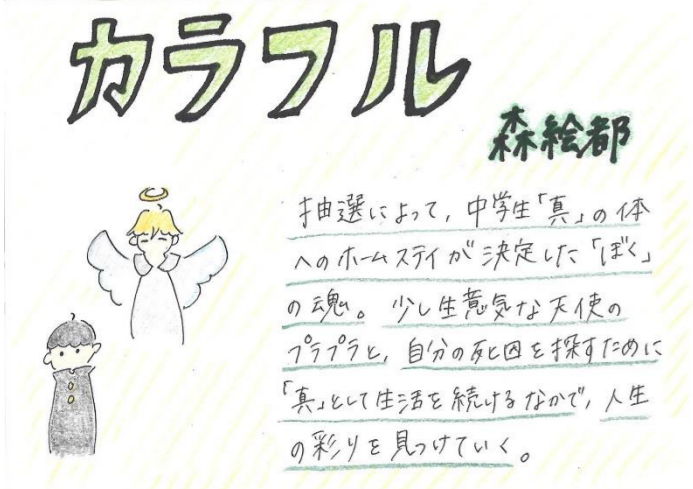 カラフル
森絵都
抽選によって，中学生「真」の体
へのホームステイが決定した「ぼく」
の魂。少し生意気な天使の
プラプラと，自分の死因を探すために
「真」として生活を続けるなかで，人生
の彩りを見つけていく。